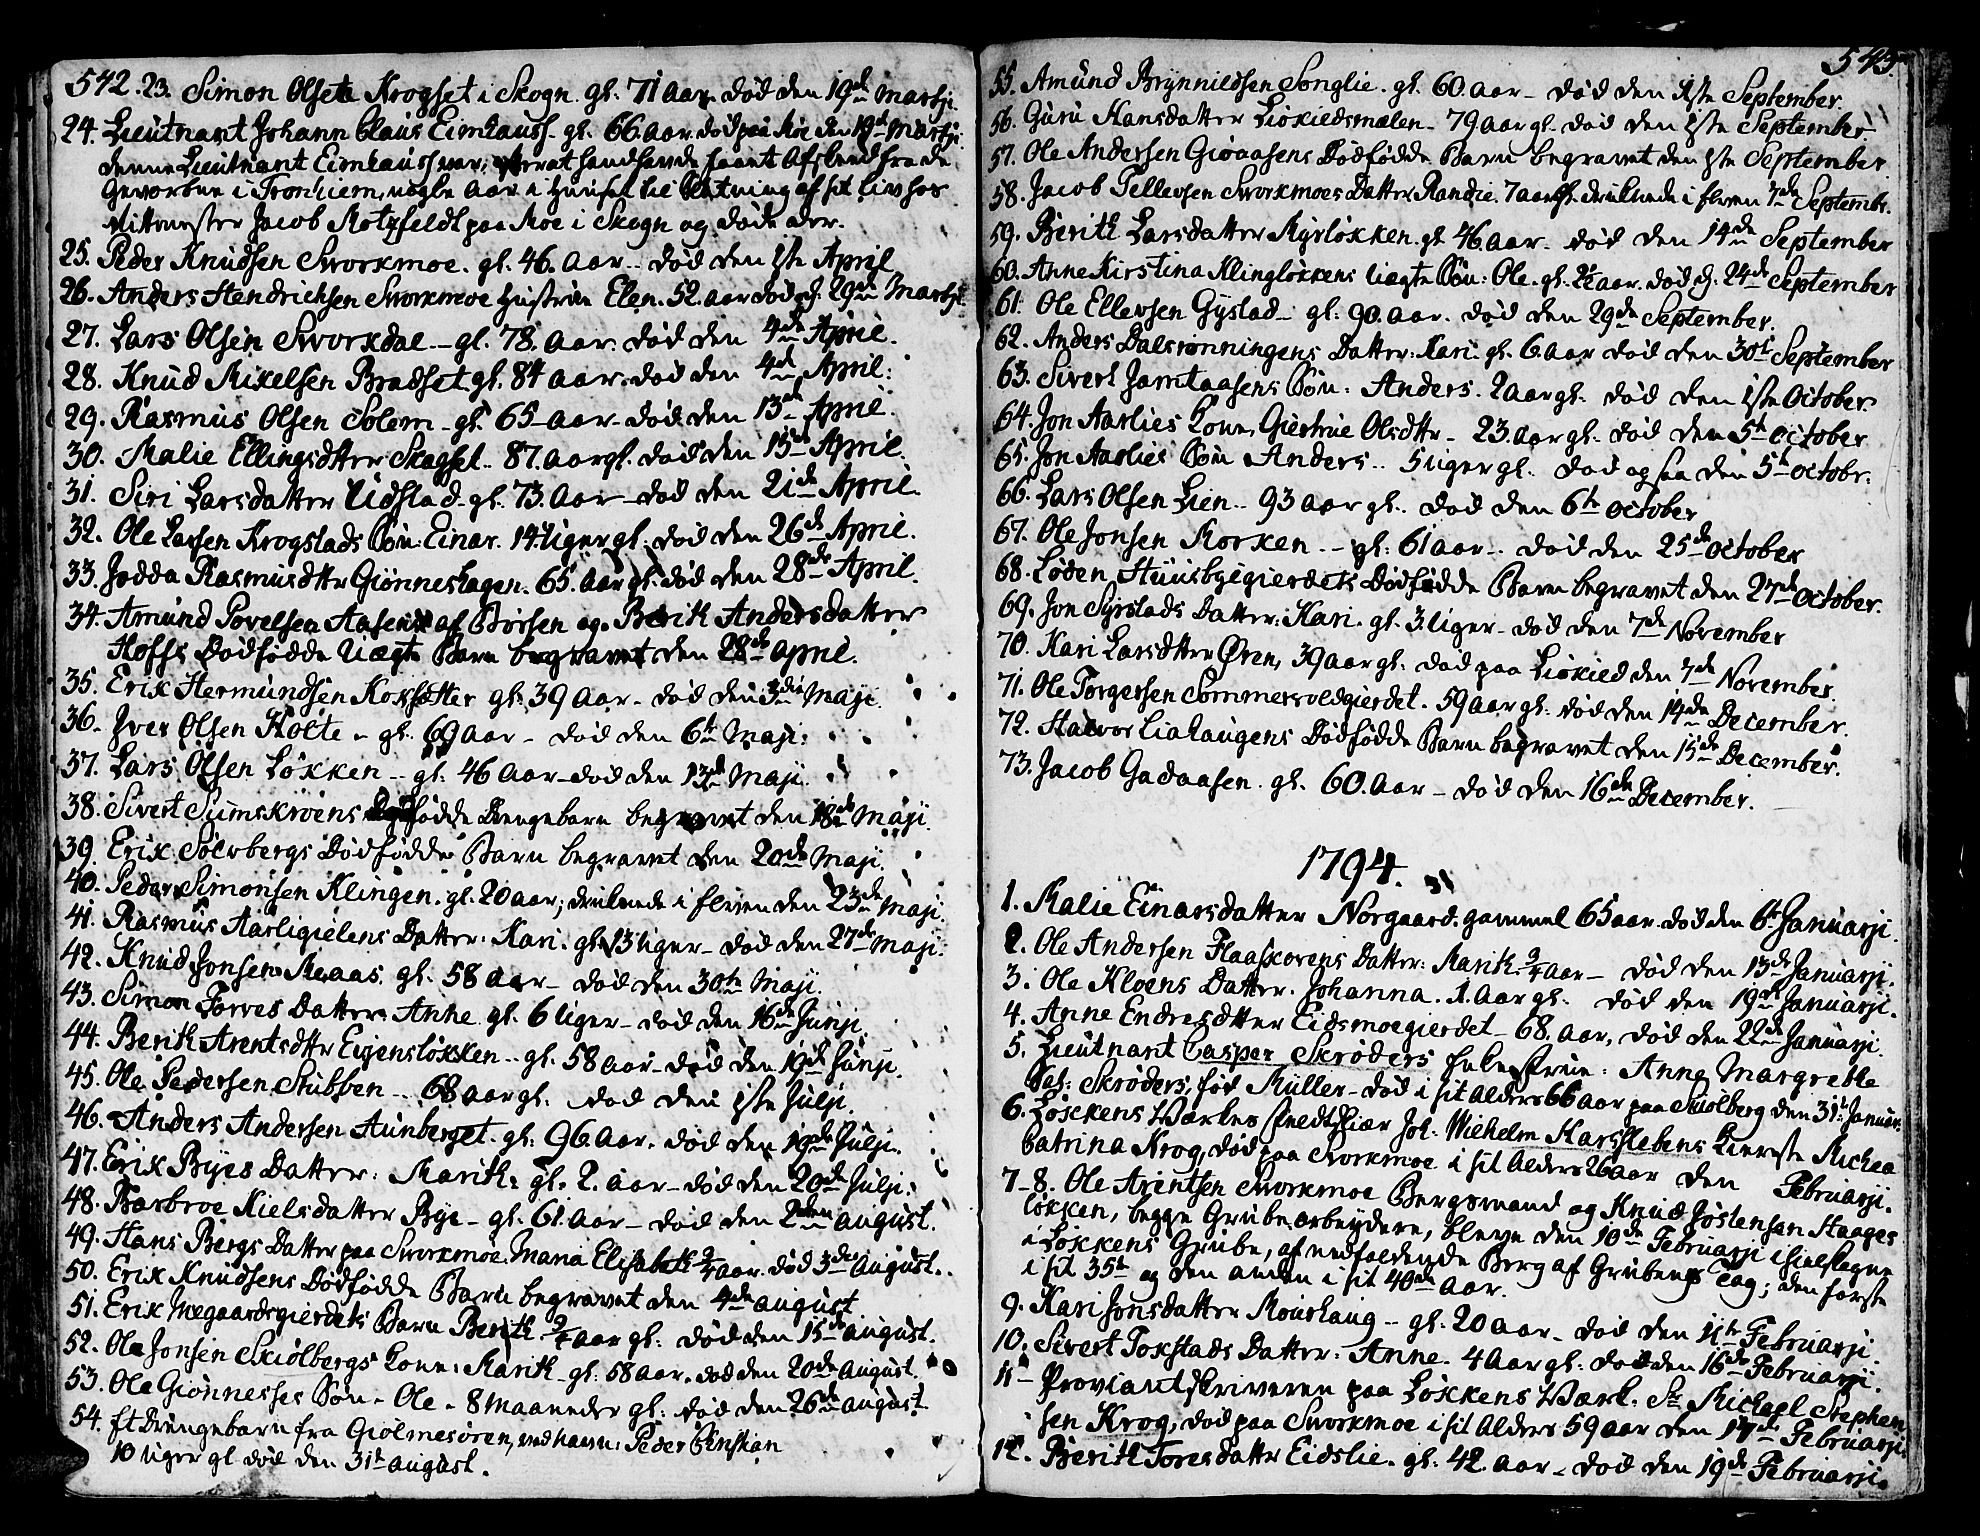 542. 23. Simon Olsen Krogset i Skogn. gl. 71 aar død den 19de Martji.
24. Lieutnant Johann Claus Eimhauss. gl. 66. aar død paa Moe den 19de Martji.
denne Lieutnant Eimhauss var: faaet Afskeed fra de
Geworbne i Tronhiem, nogle aar i huuset til sit Livs hos
Rittmester Jacob Motzfeldt paa Moe i Skogn og døde der.
25. Peder Knudsen Svorkmoe. gl. 46. aar.. død den 1ste April
26. Anders Hendrichsen Svorkmoe Hustrue Elen. 52. aar død d. 29de Martji.
27. Lars Olsen Svorkdal -- gl. 78. aar. død den 4de April.
28. Knud Mikelsen Bradset gl. 84 aar. død den 4de April:
29. Rasmus Olsen Solem - gl. 65 aar - død den 13de April.
30. Malie Ellingsdtter Skogset.. 87. aar gl. død den 15de April.
31. Siri Larsdatter Uldstad - gl. 73. aar - død den 21de April.
32. Ole Larsen Krogstads Søn: Einar. 14 uger gl. død den 26de April.
33. Jodda Rasmusdttr Giønneshagen. 65. aar gl. død den 28de April.
34. Amund Povelsen Aasen af Børsen og Berith Andersdatter
Hoffs Dødfødde Uægte Barn begravet den 28de april.
35. Erik Hermundsen Kokssætter gl. 39 aar - død den 3die Maji.
36. Iver Olsen Holte - gl. 69 aar - død den 6te Maji:
37. Lars Olsen Løkken -- gl: 46 aar - død den 13de Maji.
38. Sivert Sumskroens Dødfødde Drengebarn begravet den 18de Maji.
39. Erik Solvbergs Dødfødde Barn begravet den 20de Maji.
40. Peder Simonsen Klingen. gl. 20 aar; druknede i Elven den 23de Maji.
41. Rasmus Aarligielens Datter: Kari. gl. 13 uger - død den 27de Maji.
42. Knud Jonsen Moaas. gl. 58 aar - død den 30te Maji.
43. Simon Torves Datter: Anne gl. 6 uger - død den 16de Junji.
44. Berith Arentsdttr Eigensløkken.. gl. 58 aar - død den 19de Junji.
45. Ole Pedersen Stubben -- 68 aar gl. død den 1ste Julji.
46. Anders Andersen Aunberget. gl: 96. aar. død den 19de Julji.
47. Erik Byes Datter: Marith. gl. 2. aar - død den 20de Julji:
48. Barbroe Nielsdatter Bye - gl. 61. aar - død den 2den august.
49. Hans Bergs Datter paa Svorkmoe. Maria Elisabeth 3/4 aar. død 3die august..
50. Erik Knudsens Dødfødde Barn begravet den 4de august
51. Erik Megaardsgierdets Barn Berith 3/4 aar gl: død den 15de august.
52. Ole Jonsen Skiølbergs Kone: Marith gl: 58 aar. død den 20de august.
53. Ole Giønnesses Søn - Ole - 8 maaneder gl: død den 26de august.
54. Et Drengebarn fra Giølmesøren, ved navn: Peder Christian
10 uger gl død den 31te august.
543.
55. Amund Brynnildsen Songlie. gl. 60. aar - død den 1ste September.
56. Guru Hansdatter Liøkiedsmælen - 79 aar gl. død den 1ste September
57. Ole Andersen Gioaasens Dødfødde Barn begravet den 1ste September.
58. Jacob Tellevsen Svorkmoes Datter Randie. 7 aar gl. druknede i Elven 7de September.
59. Berith Larsdatter Myrløkken. gl 46. aar - død den 14de September
60. Anne Kirstina Klingløkkens Uægte Søn: Ole. gl. 2 1/2 aar. død d. 24de September
61. Ole Ellevsen Gystad - gl: 90. aar. død den 29de September.
62. Anders Dalsrønningens Datter: Kari. gl. 6. aar død den 30te September
63. Sivert Jamtaasens Søn: Anders. 2 aar gl. død den 1ste October.
64. Jon Aarlies Kone, Giertrue Olsdttr - 23. aar gl. død den 5te October
65. Jon Aarlies Søn Anders.. 5 uger gl. død og saa den 5te Octobr.
66. Lars Olsen Lien.. 93 aar gl.. død den 6te October
67. Ole Jonsen Morken -- gl: 61 aar.. død den 25de October
68. Løden Huusbygierdets Dødfødde Barn begravet den 27de October.
69. Jon Syrstads Datter: Kari. gl. 3 uger - død den 7de November
70. Kari Larsdtter Øren, 39 aar gl. død paa Liøkied den 7de November.
71. Ole Torgersen Sommersvoldgierdet. 59 aar gl: død den 14de December.
72. Halvor Liahaugens Dødfødde Barn begravet den 15de December.
73. Jacob Gadaasen. gl. 60. aar - død den 16de December.
1794.
1. Malie Einarsdatter Norgaard. gammel 65 aar. død den 6te Januarji.
2. Ole Andersen Flaaskovens Datter: Marith 3/4 aar - død den 13de Januarji.
3. Ole Kloens Datter. Johanna. 1. aar gl. død den 19de Januarji.
4. Anne Endresdtter Eidsmoegierdet - 68. aar, død den 22de Januarji.
5. Lieutnant Casper Skrøders Frue: Anna Margrethe
Sal: Skrøders, fød Müller - død i sit Alders 66 aar paa Skiølberg den 31te Januar.
6. Løkkens Værkes Joh: Wilhelm Karsslebens Kiereste Michea
Catrina Krog, død paa Svorkmoe i sit Alders 26 aar den Februarji.
7 - 8. Ole Arentsen Svorkmoe Bergsmand og Knud Jostensen Haages
løkken, begge Grubearbeydere, bleve den 10de Februarji ihielslagne
i Løkkens Grube, af nedfaldende Berg af Grubens Tag; den første
i sit 35te og den anden i sit 40de aar.
9. Kari Jonsdatter Mourhaug -- gl: 20 aar - død den 11te Februarji.
10. Sivert Fokstads Datter: Anne. 4 aar gl: død den 16de Februarji.
11 - Proviantskriveren paa Løkkens Værk. Sr Michael Stephen
sen Krog, død paa Svorkmoe i sit Alders 59 aar den 17de Februarji.
12. Berith Toresdattr Eidslie. gl. 42. aar - død den 19de Februarji.